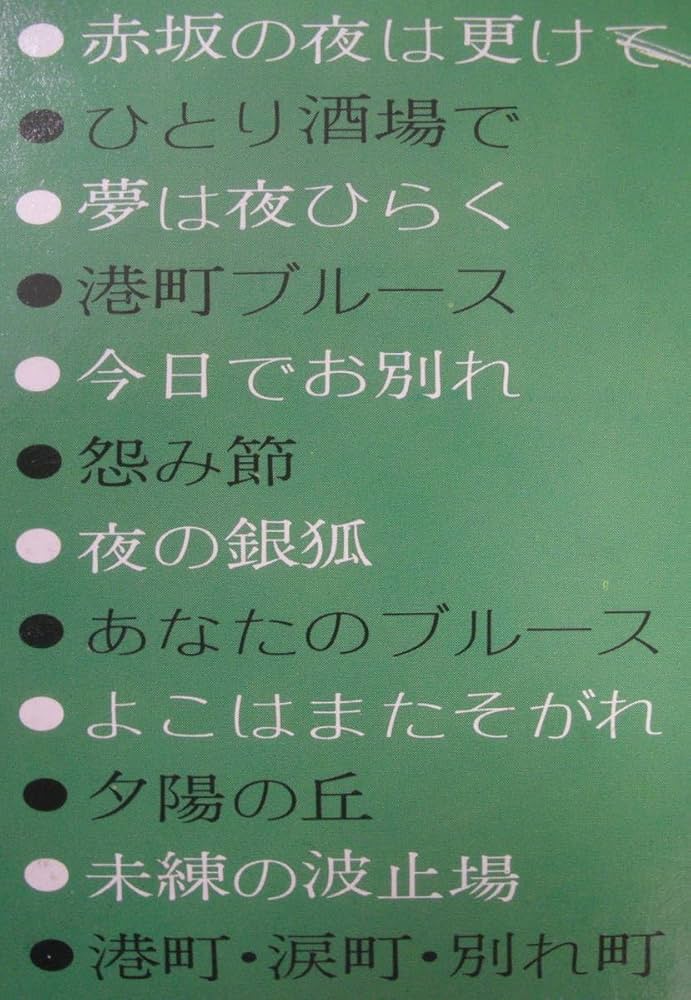 ●赤坂の夜は更けて
●ひとり酒場で
●夢は夜ひらく
●港町ブルース
●今日でお別れ
●怨み節
●夜の銀狐
●あなたのブルース
●よこはまたそがれ
●夕陽の丘
●未練の波止場
●港町・涙町・別れ町